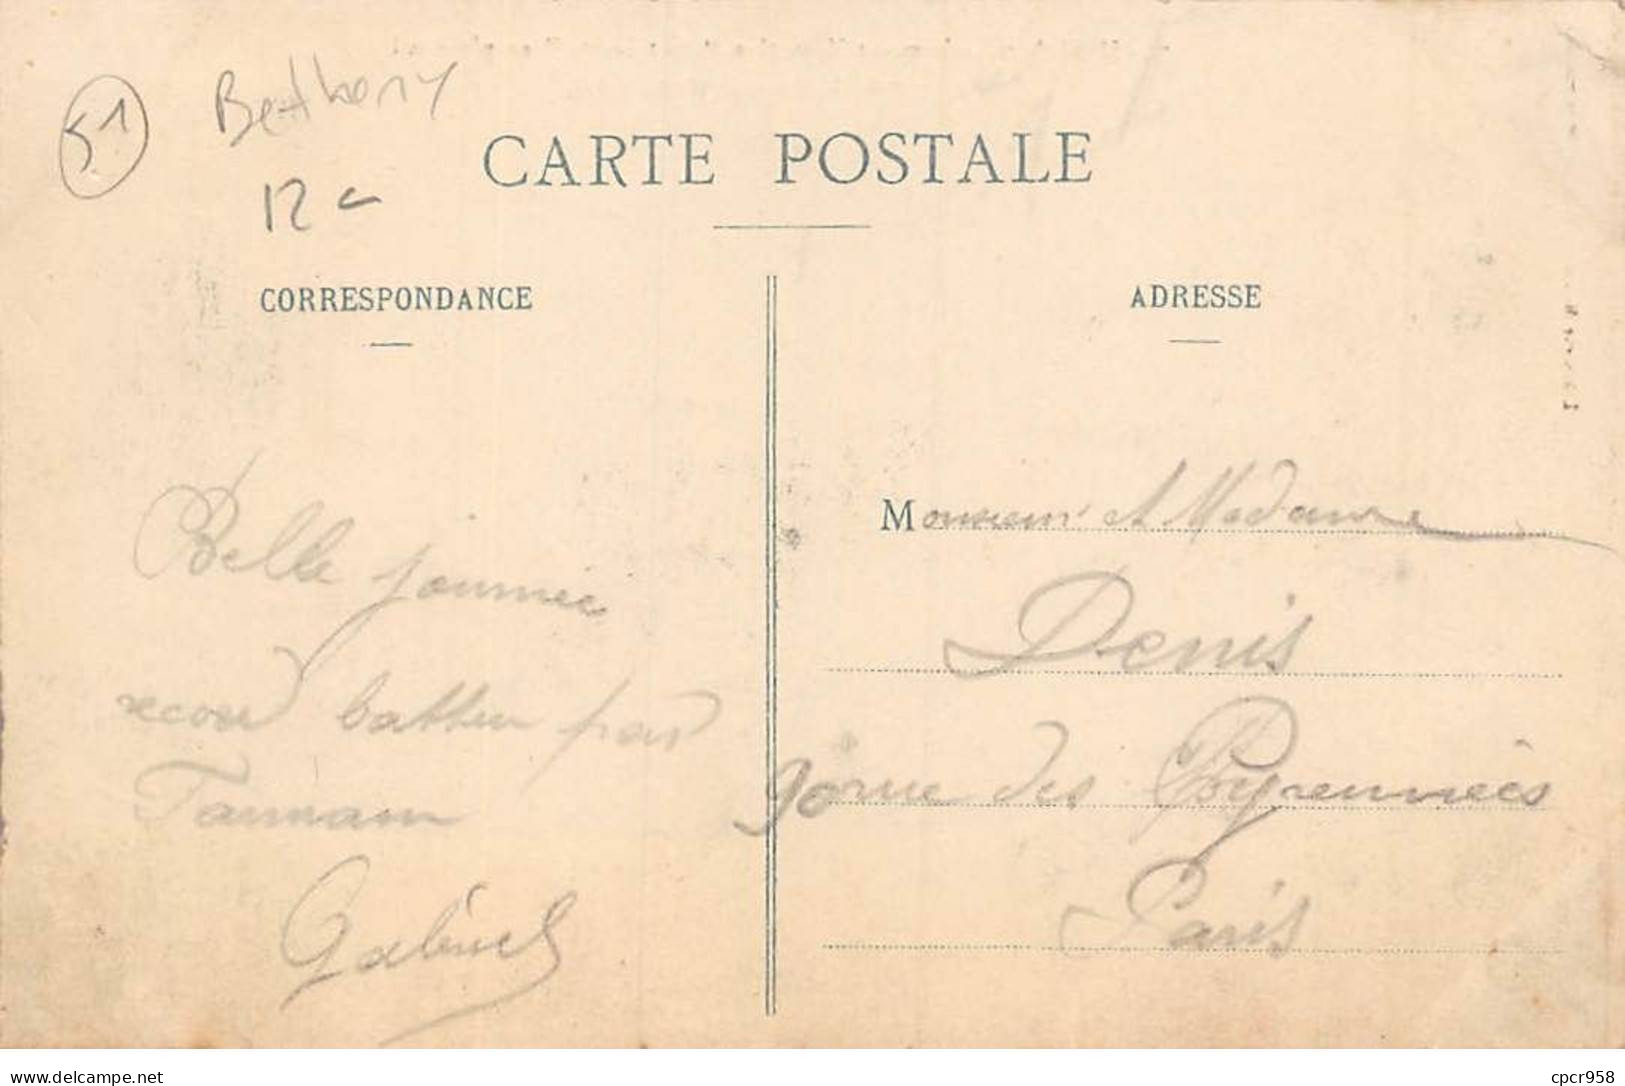 51
Betheny
12
CARTE POSTALE
CORRESPONDANCE
ADRESSE
Belle journée
record battu par
Gabriel
Monsieur et Madame
Denis
rue des Pyrennées
Paris
delcampe.net
cpcr958